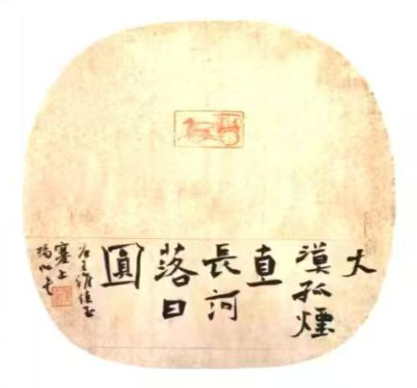 大
漠孤煙
直
長河
落日
圓
唐王維佳句
塞上